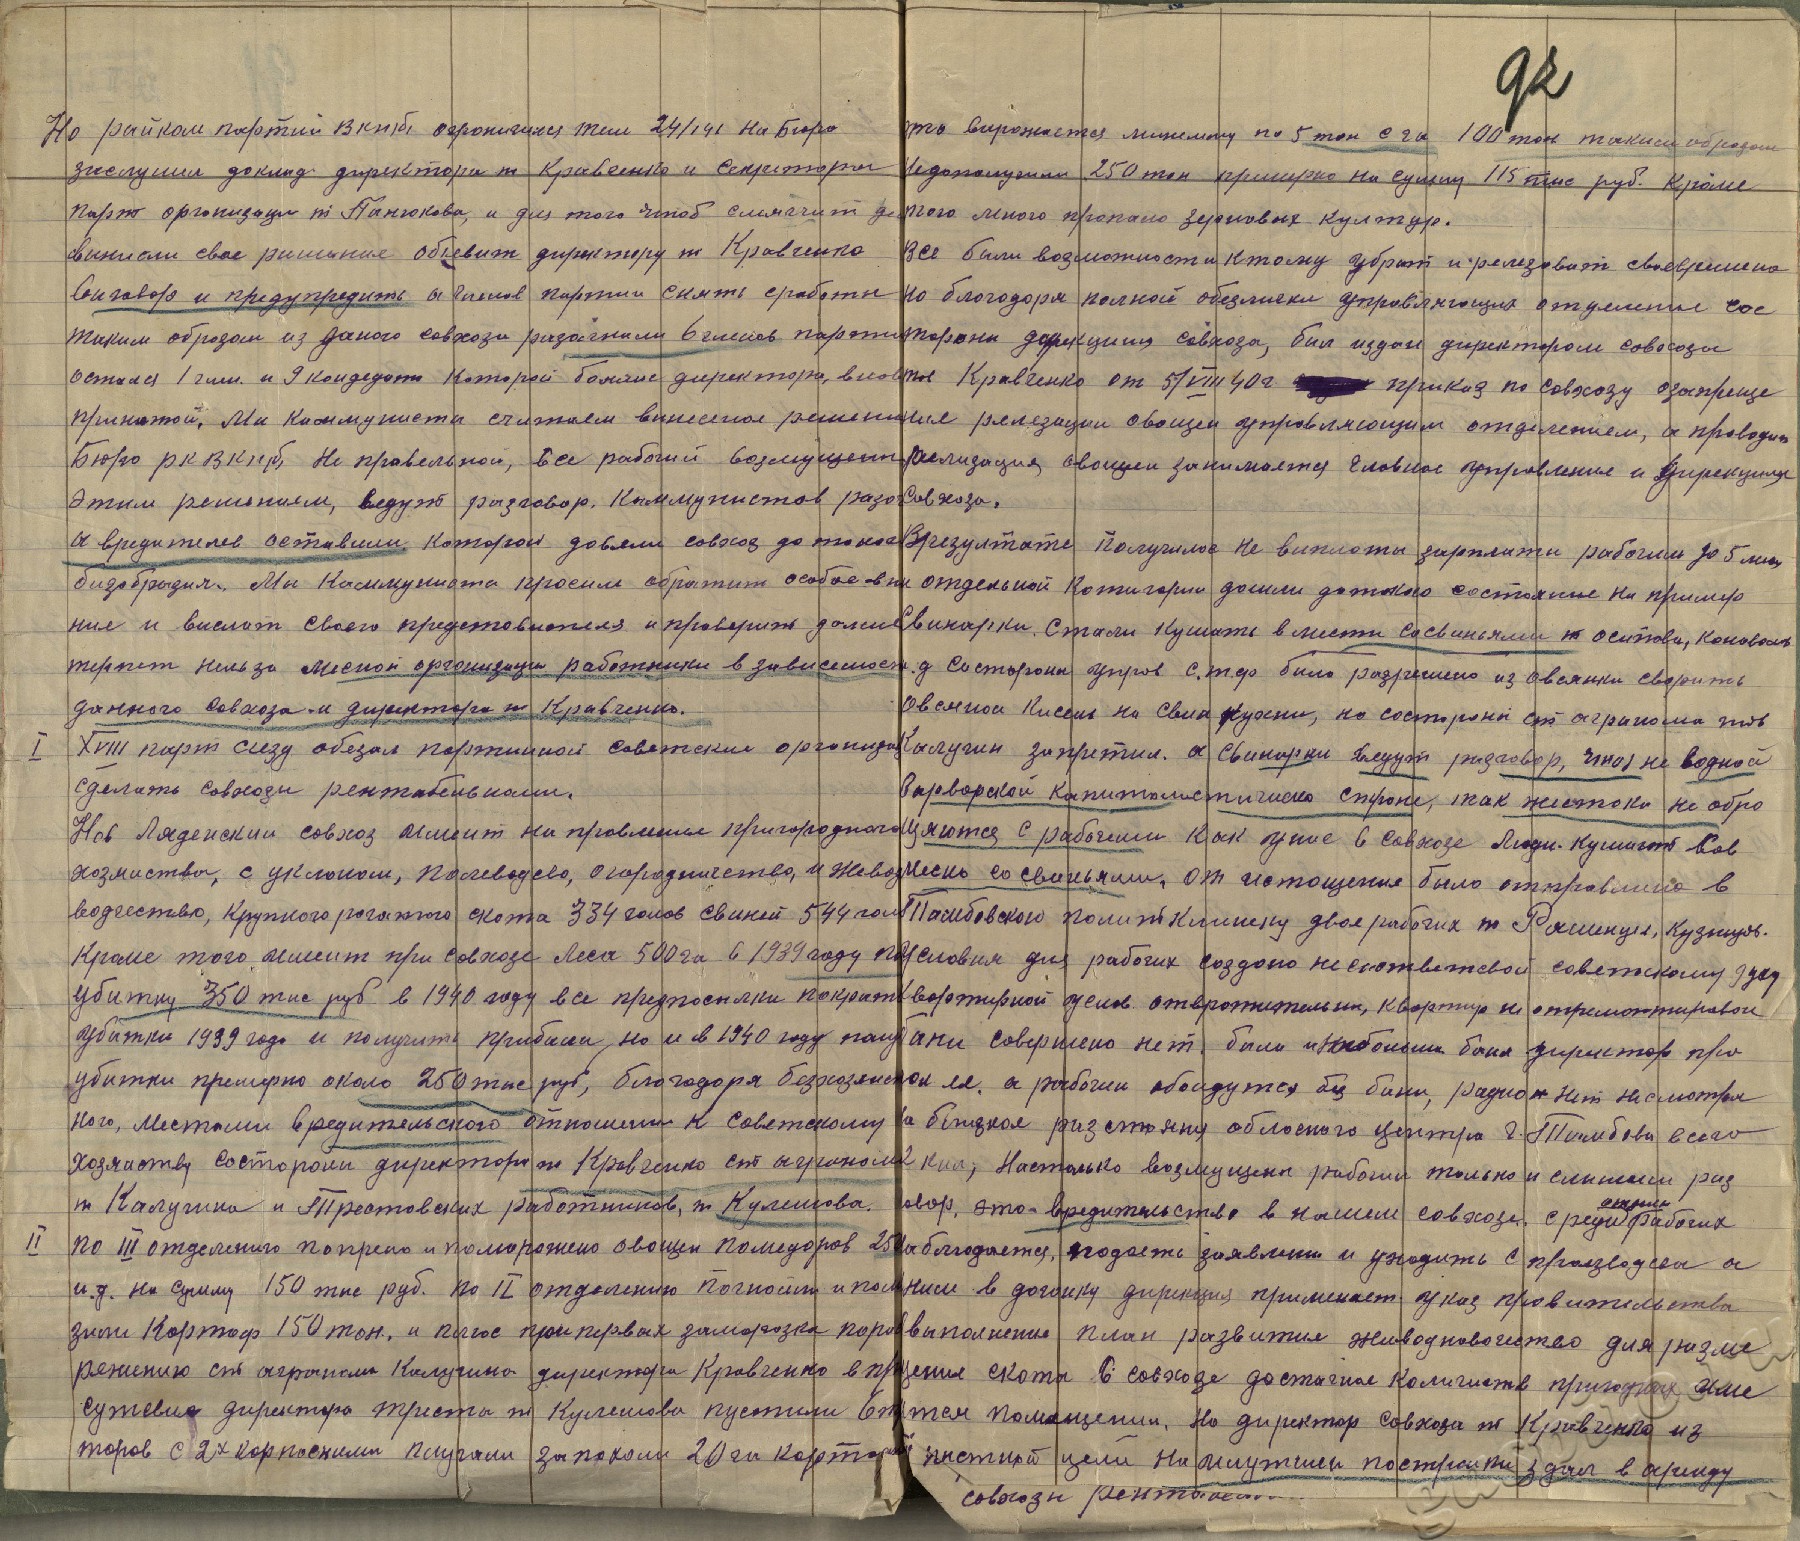 92
Но райком партии ВКП(б) огроничился тем 24/I 41 на Бюро
заслушил доклад директора т Кравченко и секретаря
парт организации т Панюкова, и для того чтоб смягчит
вынисли свое ришение обевит директору т Кравченко
выговор и предупредить а членов партии снять сработы
таким образом из даного совхоза разогнали 6 членов партии
остался 1 член. и 9 кандедата которой боятся директора, вновь
принятой. Мы коммунисты считаем вынесеное решение
Бюро РК ВКП(б) не правельной, все рабочий возмущены
этим решением, ведут разговор. Коммунистов разог
а вредителев оставили которой довели совхоз до токов
бизобразия. Мы Коммунисты просим обратит особое вни
ние и выслат своего представителя и проверить дальше
терпет нельза месной организации работники в зависемости
данного совхоза и директора т Кравченко.
I XVIII парт сьезд обезал партииной советские организац
сделать совхозы рентабельными.
Нов Ляденский совхоз имеит на провление пригородного
хозяиства, с уклоном, полеводсво, огородничество, и живо
водчество, крупного рогатого скота 334 голов свиней 544 гол
Кроме того имеит при совхозе леса 500 га в 1939 году по
убитку 350 тыс руб в 1940 году все предпосылки покрыт
убитки 1939 года и получить прибыль, но и в 1940 году полу
убитки примерно около 250 тыс руб, благодоря безхозяист
ного, местами вредительского отношения к советскому
хозяиству состороны директора т Кравченко ст агронома
т Калугина и Трестовских работников, т Кулешова.
II по III отделению попрело и поморожено овощеи помедоров 250
и.д. на сумму 150 тыс руб. по II отделению погноили и помо
зили картоф 150 тон. и после при первых заморозка по роз
режению ст агранома Калугина директора Кравченко в при
сутевие директора треста т Кулешова пустили 6 т
торов с 2х корпосними плугами запахали 20 га картоф
что вырожается минемому по 5 тон с га 100 тон таким образом
недополучили 250 тон примерно на сумму 115 тыс руб. кроме
того много пропало зерновых культур.
Все были возможности ктому убрат и релезоват своевремено
но благодоря полной обезлички управляющих отделение сос
тороны дирекции совхоза, был издан директором совхоза
тов Кравченко от 5/VIII 40 г приказ по совхозу озапреще
ние релезации овощеи управляющим отделением, а проводит
реализация овощеи занимается главное управление и дирекция
совхоза.
Врезултате получилос не виплоты зарплаты рабочим до 5 мес
отдельной котигории дошли дотакого состояние на пример
Свинарки. Стали кушать вмести сосвиньями т осипова, Коновол
и.д состороны упров с.тф было разрешено из овсянки сворить
овсяной кисель на свин кухни, но состороны ст агранома тов
Калугин запретил. а свинарки ведут разговор, что не водной
варворской капиталистическо строне, так жестоко не обро
щяются с рабочеми как у нас в совхозе люди кушают Сов
месно со свиньями, от истощение было отправлино в
Тамбовскою полит клинеку двое рабочих т Рашенцев, Кузнцов.
Условия для рабочих создано несоответсвой советскому духу
квортирной услов отвротительны, квортир не отремонтировон
бани совершено нет. была и небольшая баня директор про
ля. а рабочии обоидутся без бани, радио нет несмотря
на близкое растояния облосного центра г. Тамбова всего
2 кил, Настолько возмущены рабочии только и слышим раз
овор, это-вредительство в нашем совхозе, среди рабочих
наблюдается, подоеть заявлении и уходить с производсва а
ними в догонку дирекция применает указ провительства
выполнение план развития животноводчество для розме
щения скоты в совхозе достачное количиств пригодных име
ются помещении. Но директор совхоза т Кравченко из
чистной цели намлучшеи построики здал в аренду
совхозы рента